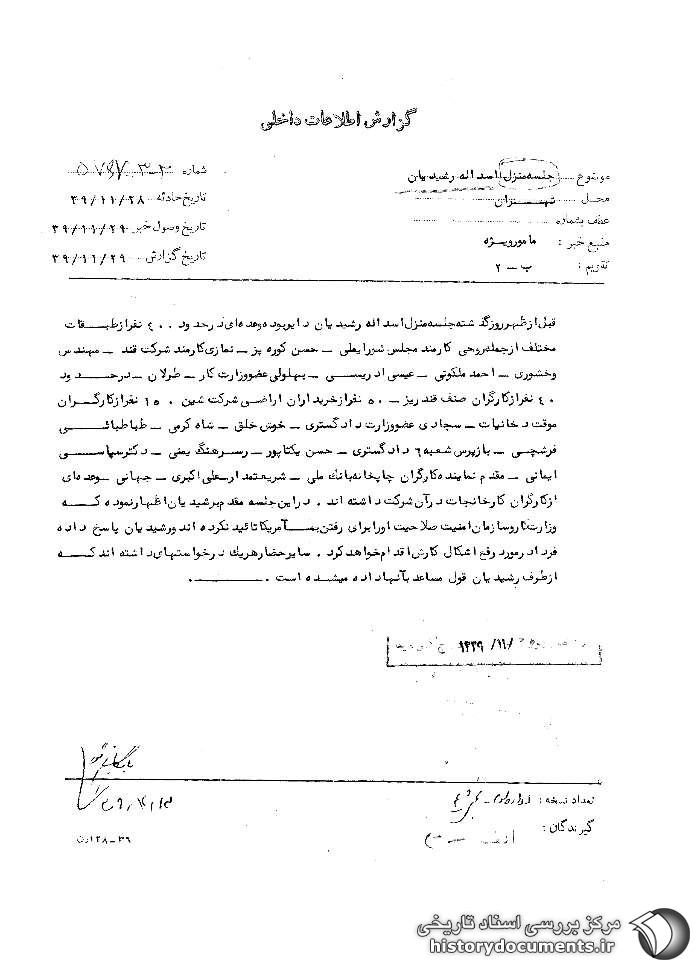 گزارش اطلاعات داخلی
موضوع جلسه منزل اسداله رشیدیان
محل تهران
عطف بشماره
منبع خبر : مامور ویژه
تقویم : ب – ۲
شماره
تاریخ حادثه ۳۹/۱۱/۲۸
تاریخ وصول خبر ۳۹/۱۱/۲۹
تاریخ گزارش ۳۹/۱۱/۲۹
قبل از ظهر روز گذشته جلسه منزل اسداله رشیدیان دایر بوده وعده‌ای در حدود ۴۰۰ نفر از طبقات
مختلف از جمله روحی کارمند مجلس شورایملی – حسن کوره پز – نمازی کارمند شرکت قند – مهندس
وخشوری – احمد ملکوتی – عیسی ادریسی – پهلولی عضو وزارت کار – طرلان – در حدود
۴۰ نفر از کارگران صنف قند ریز – ۵۰ نفر از خریداران اراضی شرکت شین ۱۵۰ نفر از کارگران
موقت دخانیات – سجادی عضو وزارت دادگستری – خوش خلق – شاه کرمی – طباطبائی
فرشچی – بازپرس شعبه ۶ دادگستری – حسن یکتاپور – سرهنگ یمنی – دکتر سپاسی
ایمانی – مقدم نماینده کارگران چاپخانه بانک ملی – شریعتمدار – علی اکبری – جهانی وعده‌ای
از کارگران کارخانجات در آن شرکت داشته اند . در این جلسه مقدم برشیدیان اظهار نموده که
وزارت کار و سازمان امنیت صلاحیت اورا برای رفتن به آمریکا تائید نکرده اند و رشیدیان پاسخ داده
فردا در مورد رفع اشکال کارش اقدام خواهد کرد . سایر حضار هریک درخواستهای داشته اند که
از طرف رشیدیان قول مساعد بآنها داده میشده است .
/۱۱/ ۱۳۳۹
بایگانی شود
تعداد نسخه :
گیرندگان : الف
۳۶–۱۲۸
مرکز بررسی اسناد تاریخی
historydocuments.ir